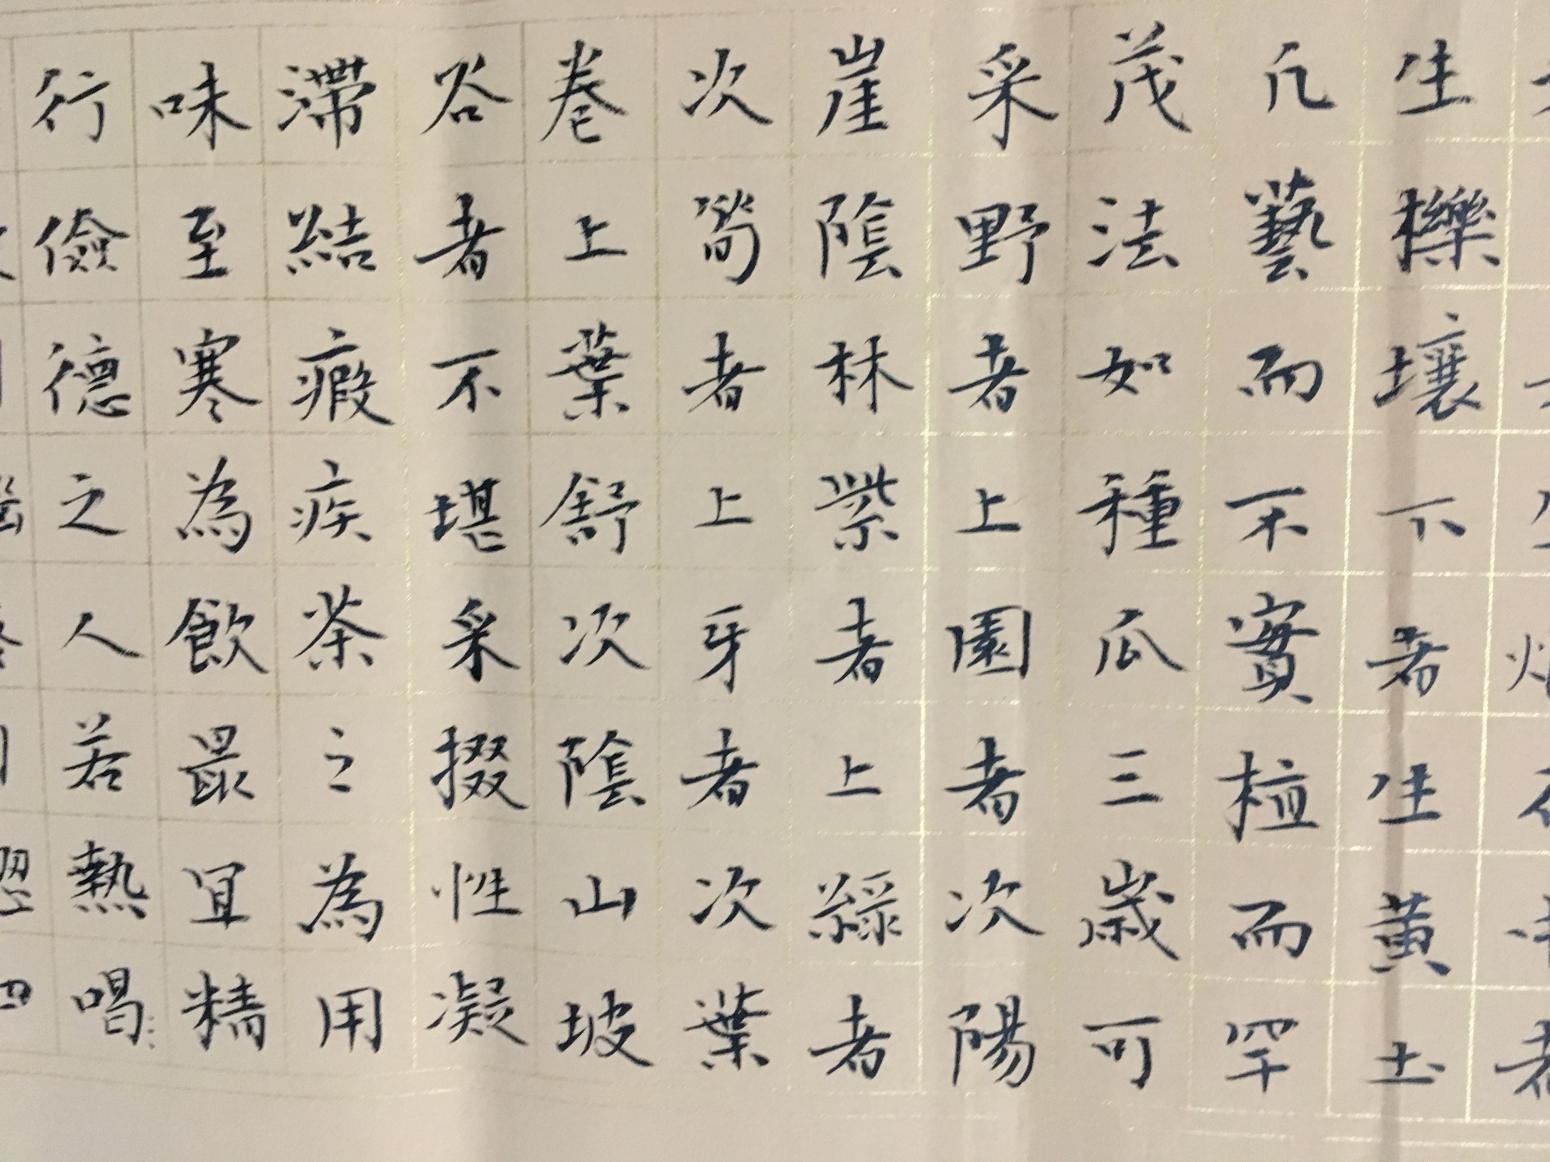 生櫟壤下者生黃土
凡藝而不實植而罕
茂法如種瓜三歲可
采野者上園者次陽
崖陰林紫者上綠者
次筍者上牙者次葉
卷上葉舒次陰山坡
谷者不堪采掇性凝
滯結瘕疾茶之為用
味至寒為飲最宜精
行儉德之人若熱喝